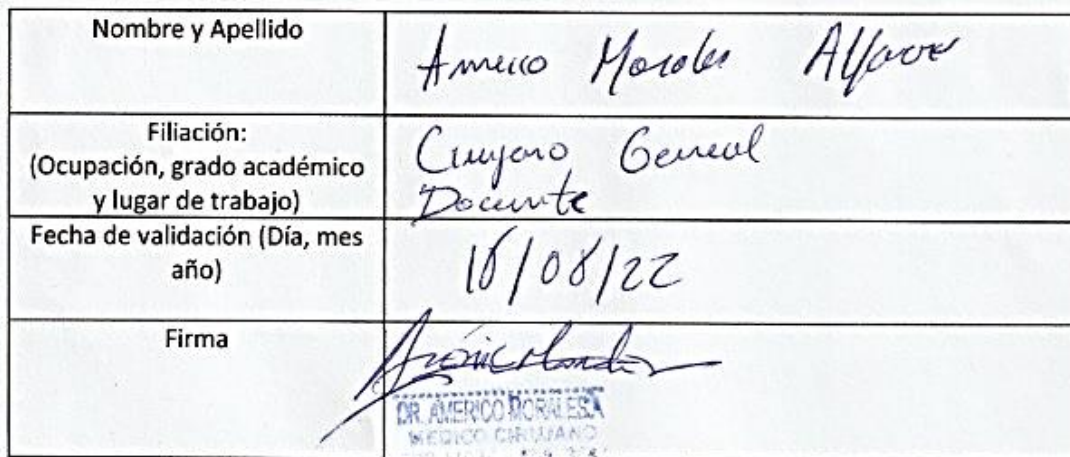 Nombre y Apellido
Americo Morales Alfaro
Filiación:
(Ocupación, grado académico
y lugar de trabajo)
Cirujano General
Docente
Fecha de validación (Día, mes
año)
16/08/22
Firma
DR. AMERICO MORALES A
MEDICO CIRUJANO